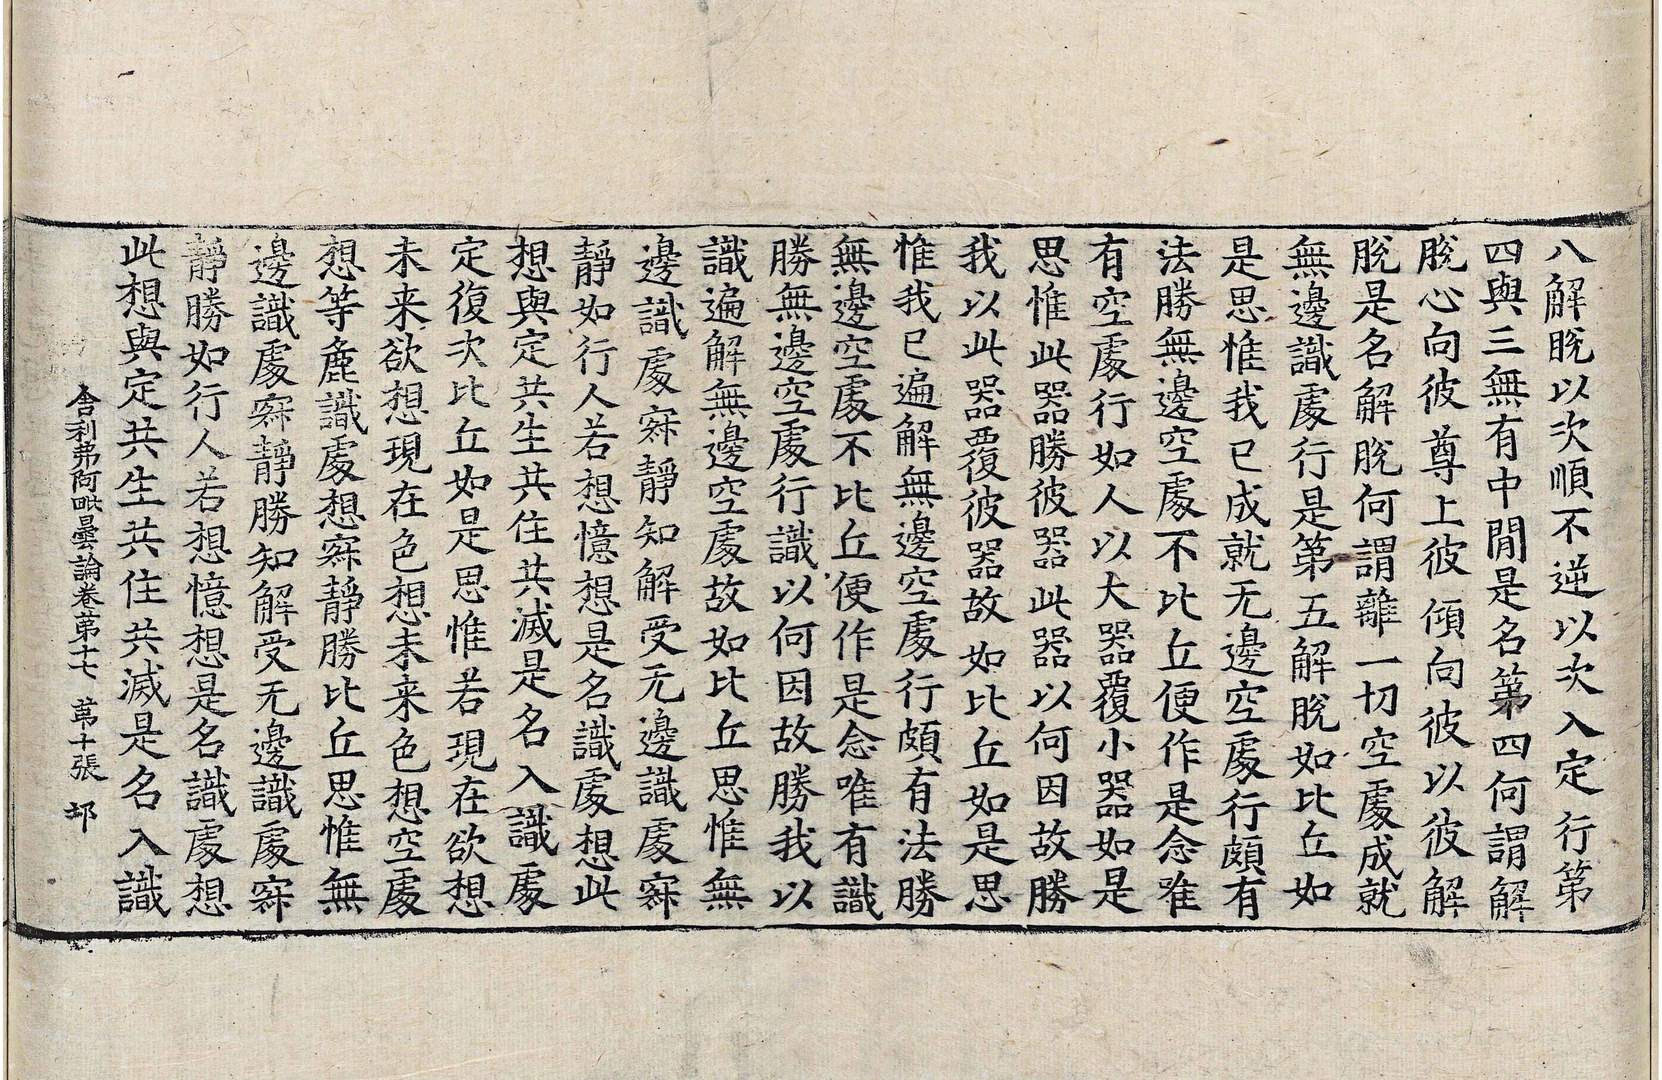 八解脫以次順不逆以次入定行第
四與三無有中閒是名第四何謂解
脫心向彼尊上彼傾向彼以彼解
脫是名解脫何謂離一切空處成就
無邊識處行是第五解脫如比丘如
是思惟我已成就无邊空處行頗有
法勝無邊空處不比丘便作是念唯
有空處行如人以大器覆小器如是
思惟此器勝彼器此器以何因故勝
我以此器覆彼器故如比丘如是思
惟我已遍解無邊空處行頗有法勝
無邊空處不比丘便作是念唯有識
勝無邊空處行識以何因故勝我以
識遍解無邊空處故如比丘思惟無
邊識處寂靜知解受无邊識處寂
靜如行人若想憶想是名識處想此
想與定共生共住共滅是名入識處
定復次比丘如是思惟若現在欲想
未来欲想現在色想未来色想空處
想等麁識處想寂靜勝比丘思惟無
邊識處寂靜勝知解受无邊識處寂
靜勝如行人若想憶想是名識處想
此想與定共生共住共滅是名入識
舍利弗阿毗曇論卷第十七 苐十張 䢴